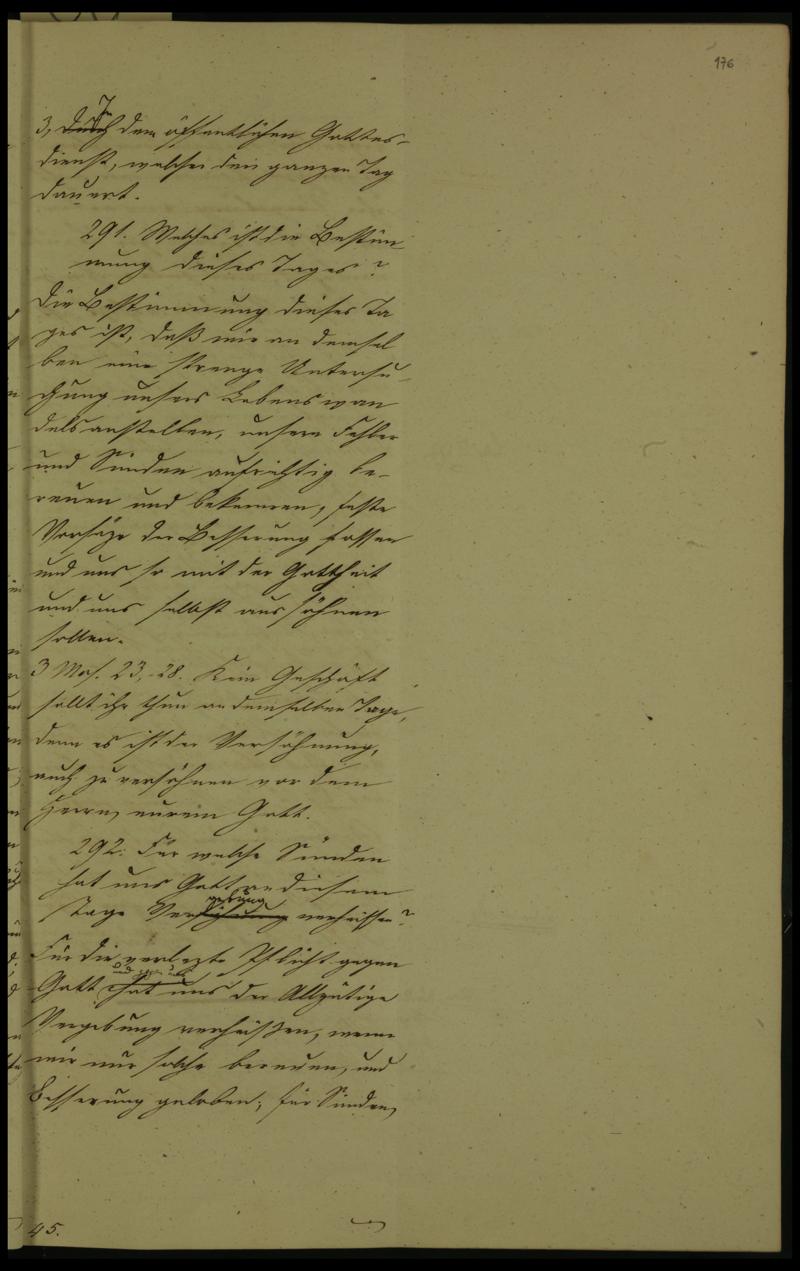 176
3, Durch den öffentlichen Gottes-
dienst, welcher den ganzen Tag
dauert.
291. Welches ist die Bestim-
mung dieses Tages?
Die Bestimmung dieses Ta
ges ist, daß wir an demsel
ben eine strenge Untersu-
chung unsers Lebenswan
dels anstellen, unsere Fehler
und Sünden aufrichtig be-
reuen und bekennen, feste
Vorsäze der Besserung fassen
und uns so mit der Gottheit
und uns selbst aussöhnen
sollen.
3 Mos. 23,-28. Kein Geschäft
sollt ihr thun an demselben Tage,
denn es ist der Versöhnung,
euch zu versöhnen vor dem
Herrn, eurem Gott.
292. Für welche Sünden
hat uns Gott an diesem
gebung
Tage Versöhnung verheißen?
Für die verlezte Pflicht gegen
Gott hat uns der Allgütige
Vergebung verheißen, wenn
wir nur solche bereuen, und
Besserung geloben; für Sünden,
45.